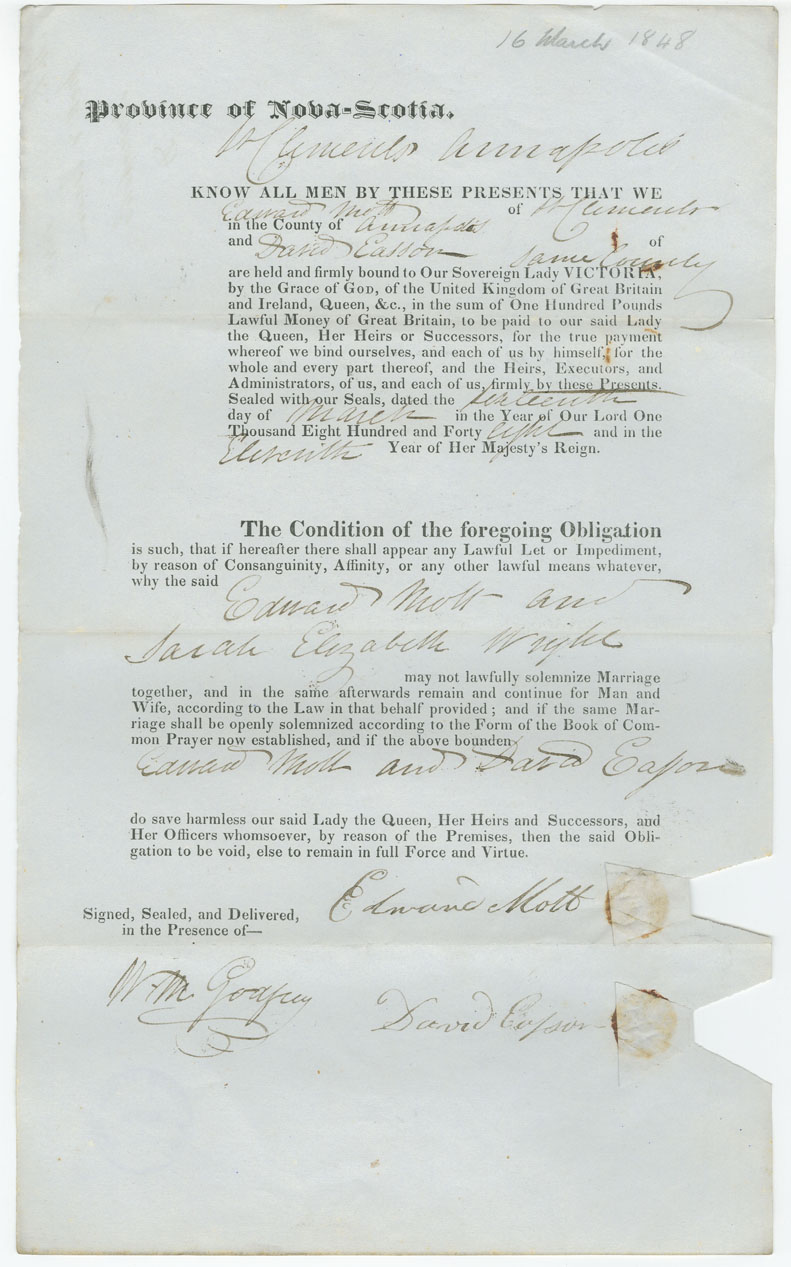 16 March 1848
Province of Nova-Scotia.
St Clements Annapolis
KNOW ALL MEN BY THESE PRESENTS THAT WE
Edward Mott of St Clements
in the County of Annapolis
and David Easson same County of
are held and firmly bound to Our Sovereign Lady VICTORIA,
by the Grace of GOD, of the United Kingdom of Great Britain
and Ireland, Queen, &c., in the sum of One Hundred Pounds
Lawful Money of Great Britain, to be paid to our said Lady
the Queen, Her Heirs or Successors, for the true payment
whereof we bind ourselves, and each of us by himself, for the
whole and every part thereof, and the Heirs, Executors, and
Administrators, of us, and each of us, firmly by these Presents.
Sealed with our Seals, dated the sixteenth
day of March in the Year of Our Lord One
Thousand Eight Hundred and Forty eight and in the
Eleventh Year of Her Majesty's Reign.
The Condition of the foregoing Obligation
is such, that if hereafter there shall appear any Lawful Let or Impediment,
by reason of Consanguinity, Affinity, or any other lawful means whatever,
why the said
Edward Mott and
Sarah Elizabeth Wright
may not lawfully solemnize Marriage
together, and in the same afterwards remain and continue for Man and
Wife, according to the Law in that behalf provided; and if the same Mar-
riage shall be openly solemnized according to the Form of the Book of Com-
mon Prayer now established, and if the above bounden
Edward Mott and David Easson
do save harmless our said Lady the Queen, Her Heirs and Successors, and
Her Officers whomsoever, by reason of the Premises, then the said Obli-
gation to be void, else to remain in full Force and Virtue.
Edward Mott
Signed, Sealed, and Delivered,
in the Presence of—
Wm Godfrey
David Easson